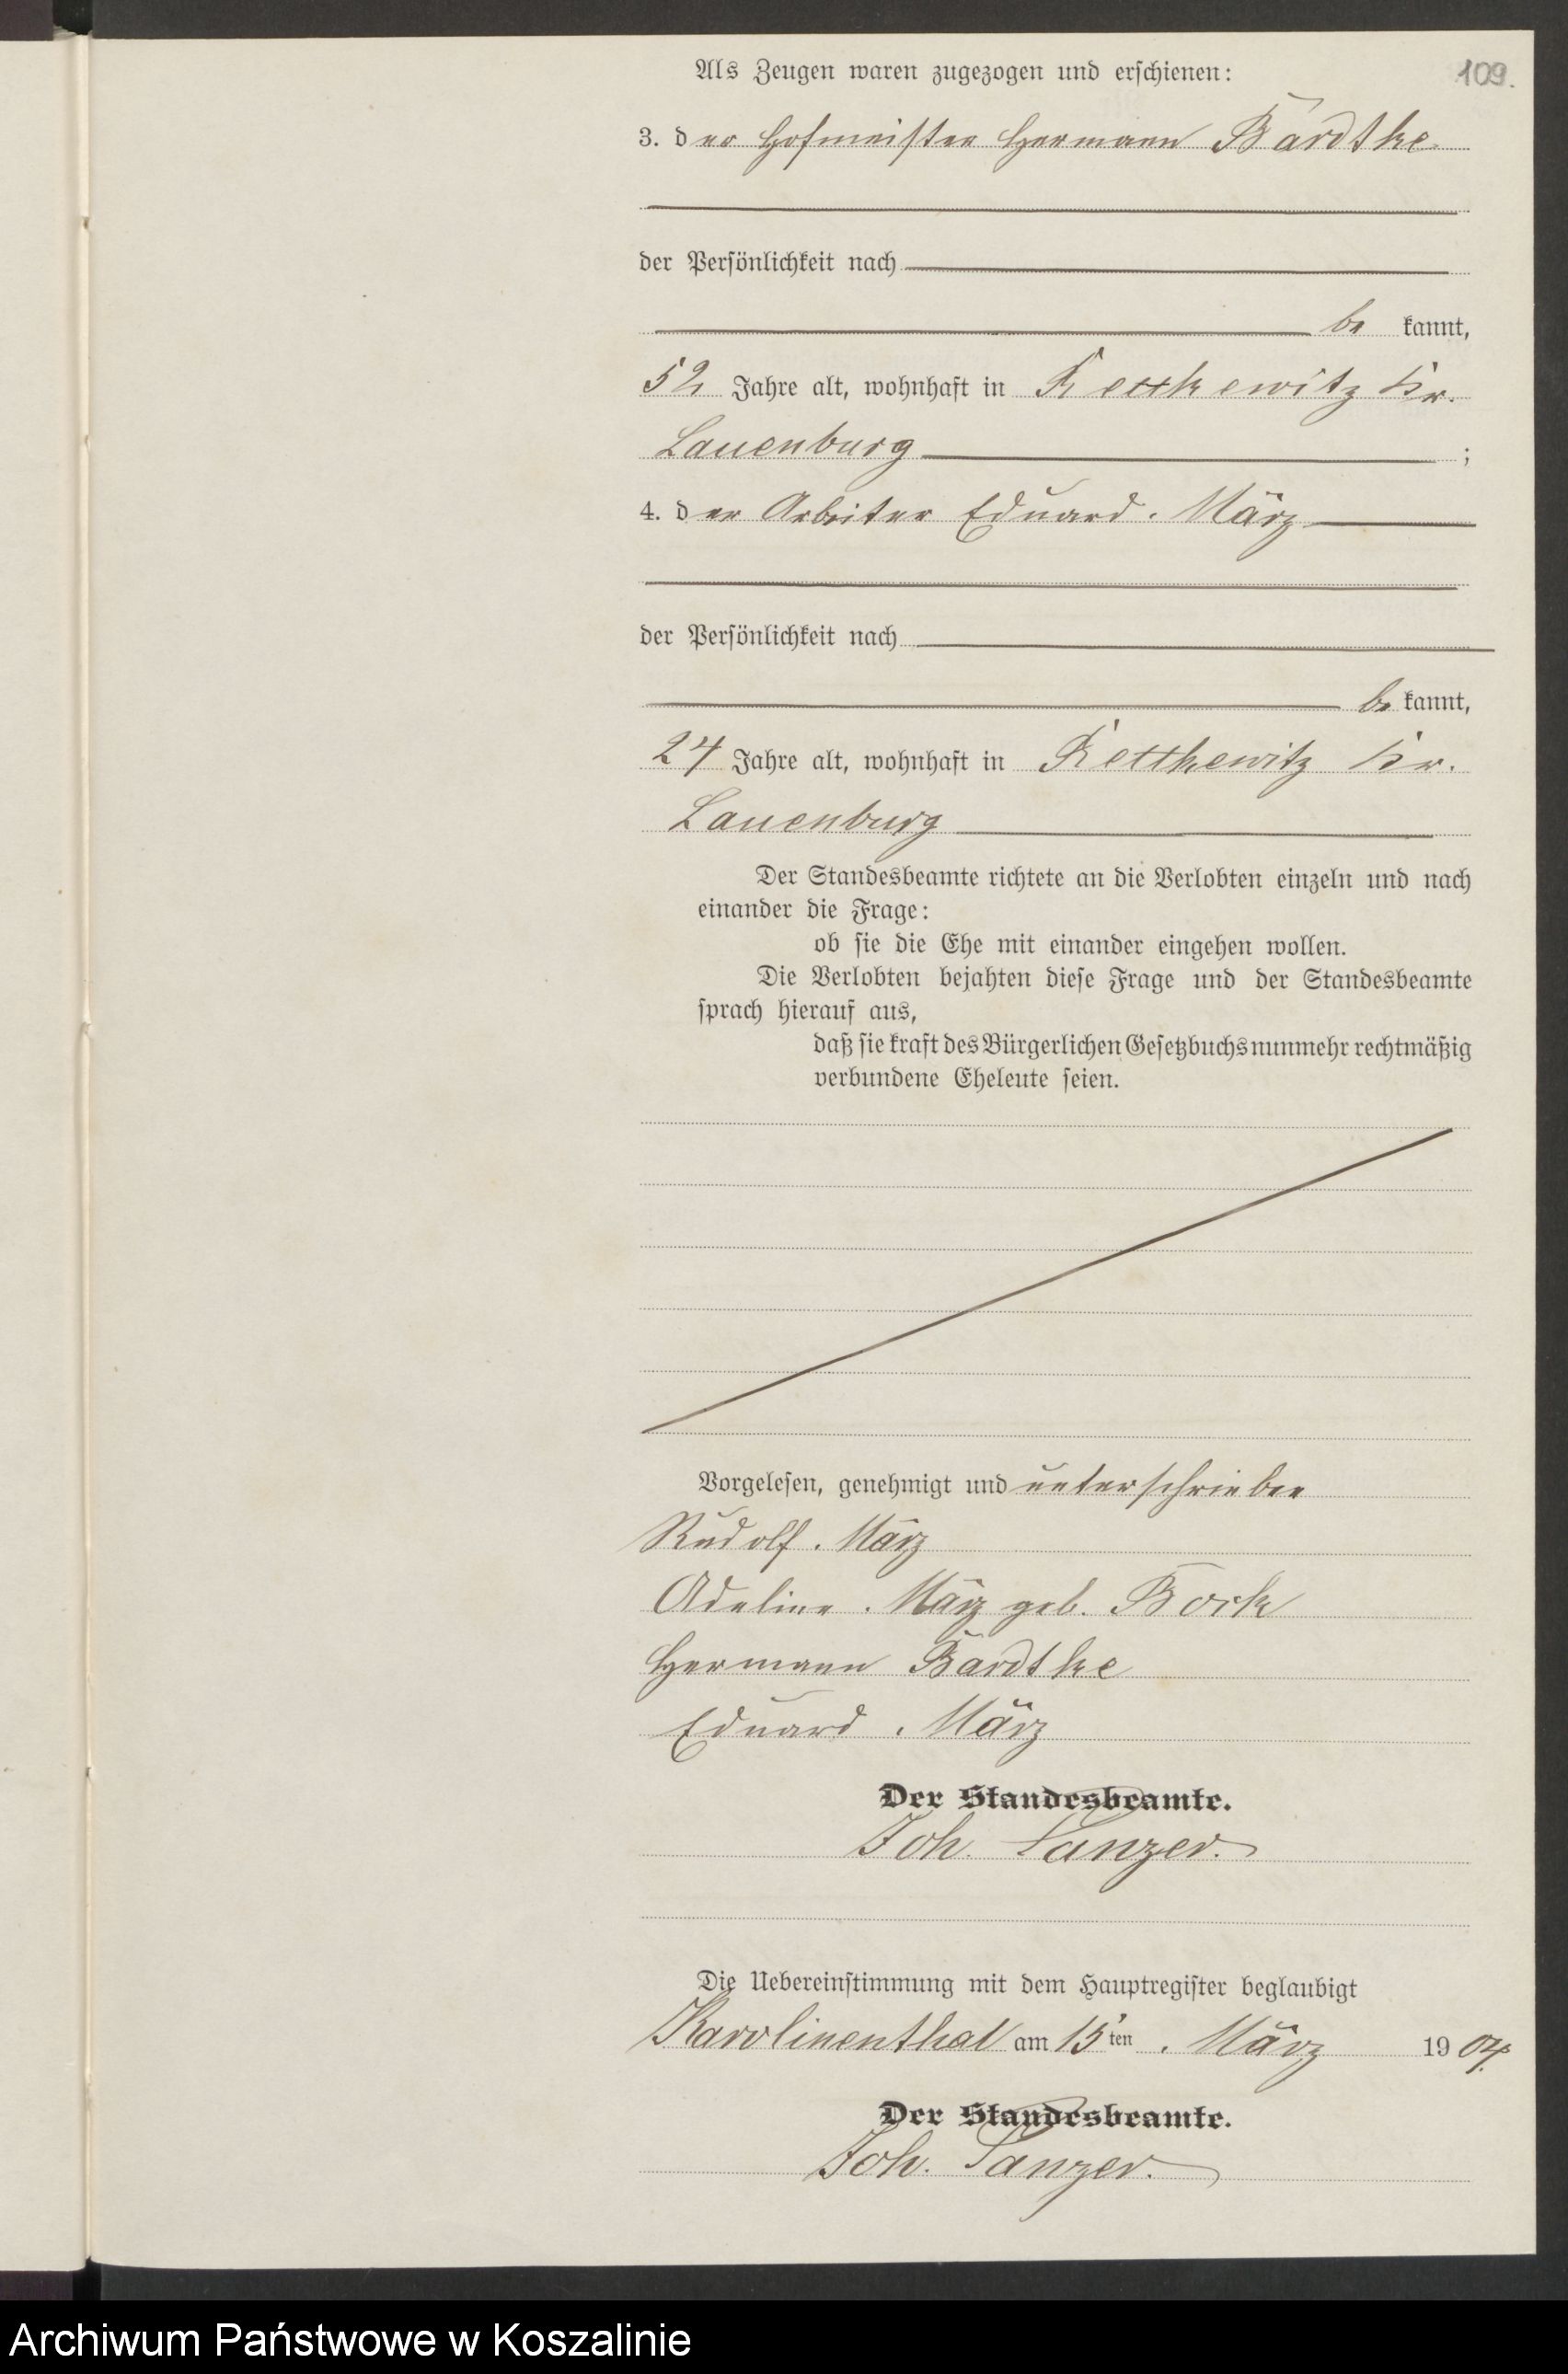 109.
Als Zeugen waren zugezogen und erschienen:
3. der Hofmeister Hermann Bardtke
der Persönlichkeit nach
be kannt,
52 Jahre alt, wohnhaft in Rettkewitz Kr.
Lauenburg ;
4. der Arbeiter Eduard März
der Persönlichkeit nach
be kannt,
24 Jahre alt, wohnhaft in Rettkewitz Kr.
Lauenburg
Der Standesbeamte richtete an die Verlobten einzeln und nach
einander die Frage:
ob sie die Ehe mit einander eingehen wollen.
Die Verlobten bejahten diese Frage und der Standesbeamte
sprach hierauf aus,
daß sie kraft des Bürgerlichen Gesetzbuchs nunmehr rechtmäßig
verbundene Eheleute seien.
Vorgelesen, genehmigt und unterschrieben
Rudolf März
Adeline März geb. Bock
Hermann Bardtke
Eduard März
Der Standesbeamte.
Joh. Lanzer.
Die Uebereinstimmung mit dem Hauptregister beglaubigt
Karolinenthal am 15ten März 1904.
Der Standesbeamte.
Joh. Lanzer.
Archiwum Państwowe w Koszalinie